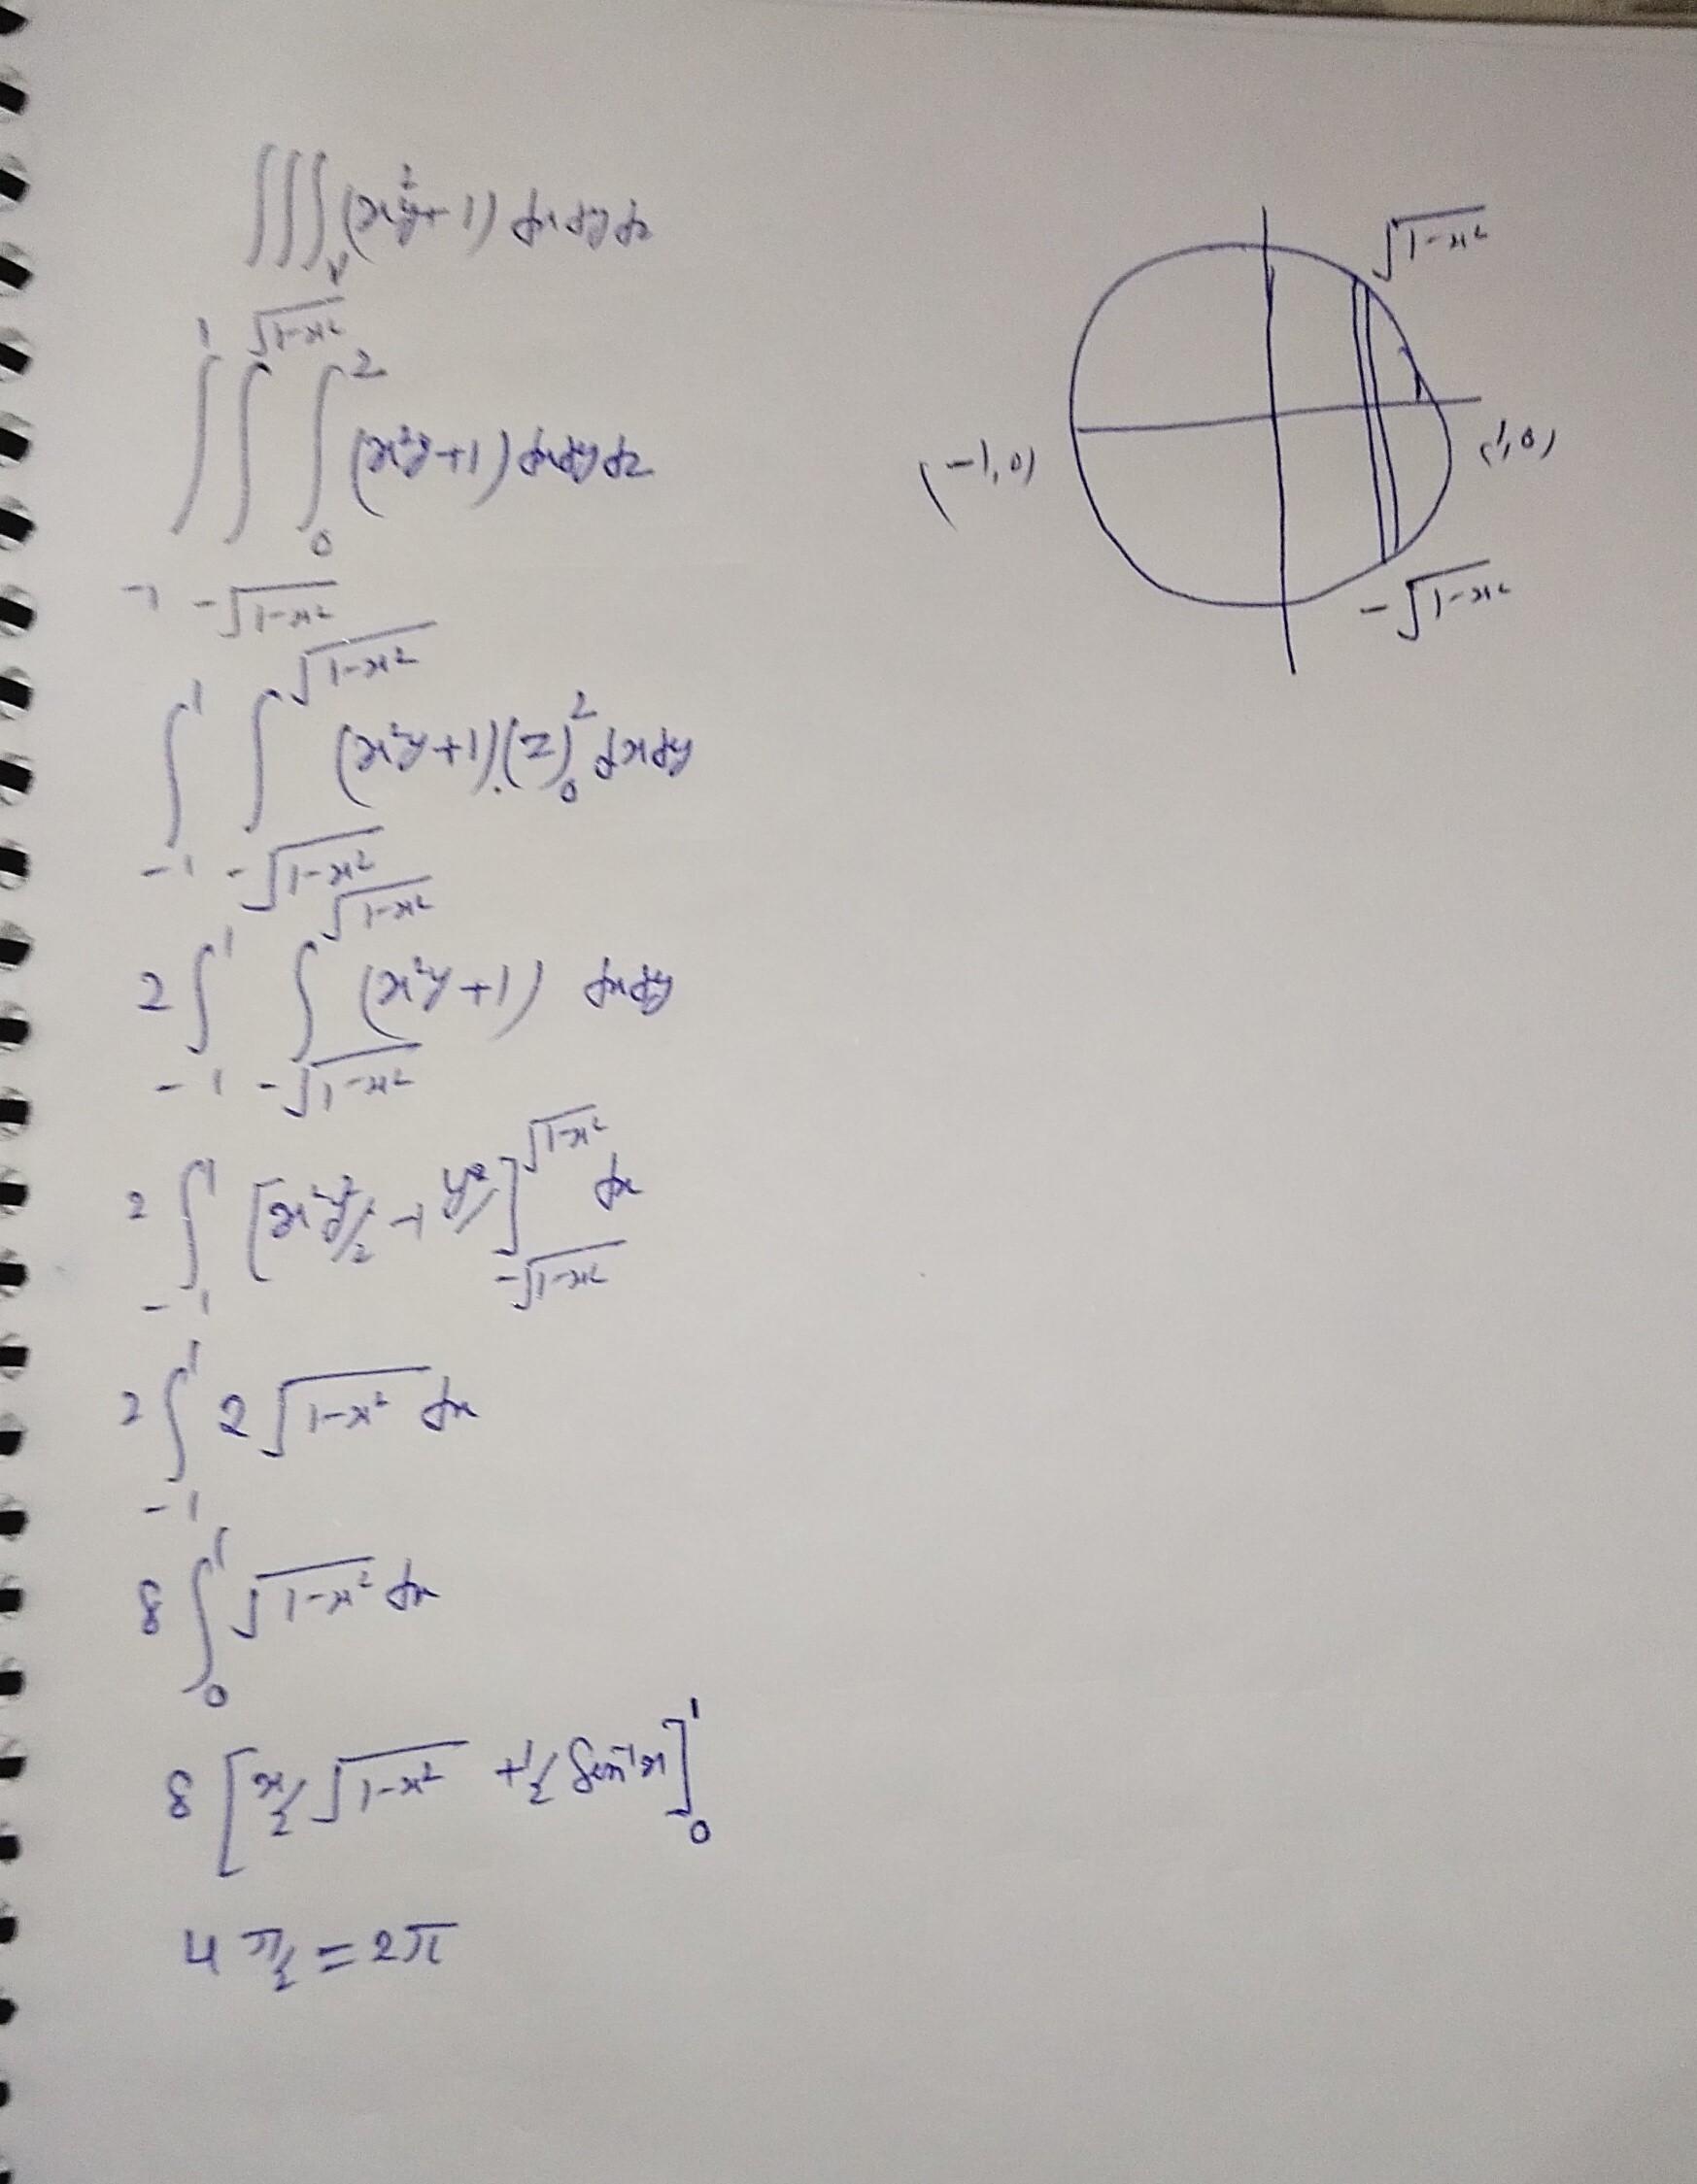 ∭_V (x²y+1) dx dy dz
∫_{-1}^{1} ∫_{-√(1-x²)}^{√(1-x²)} ∫_0^2 (x²y+1) dx dy dz
∫_{-1}^{1} ∫_{-√(1-x²)}^{√(1-x²)} (x²y+1).(z)_0^2 dx dy
2 ∫_{-1}^{1} ∫_{-√(1-x²)}^{√(1-x²)} (x²y+1) dx dy
2 ∫_{-1}^{1} [x² y²/2 + y]_{-√(1-x²)}^{√(1-x²)} dx
2 ∫_{-1}^{1} 2 √(1-x²) dx
8 ∫_0^1 √(1-x²) dx
8 [x/2 √(1-x²) + 1/2 Sin⁻¹x]_0^1
4 π/2 = 2π
√(1-x²)
(-1,0)
(1,0)
-√(1-x²)